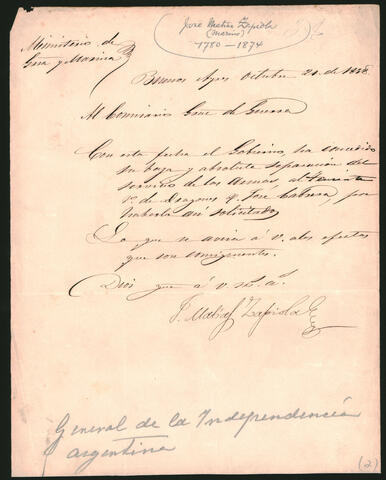 José Matías Zapiola
(Marino)
1780 — 1874
Ministerio de
Gra y Marina
Buenos Ayres Octubre 20. de 1858.
Al Comisario Gral de Guerra
Con esta fecha el Gobierno ha concedido
su baja y absoluta separacion del
servicio de las Armas al Teniente
1º. de Dragones D. José Cabrera, por
haberla asi solicitado
Lo que se avisa á V. á los efectos
que son consiguientes.
Dios gue á V. ms. as.
J. Matias Zapiola
General de la Independencia
argentina
(2)